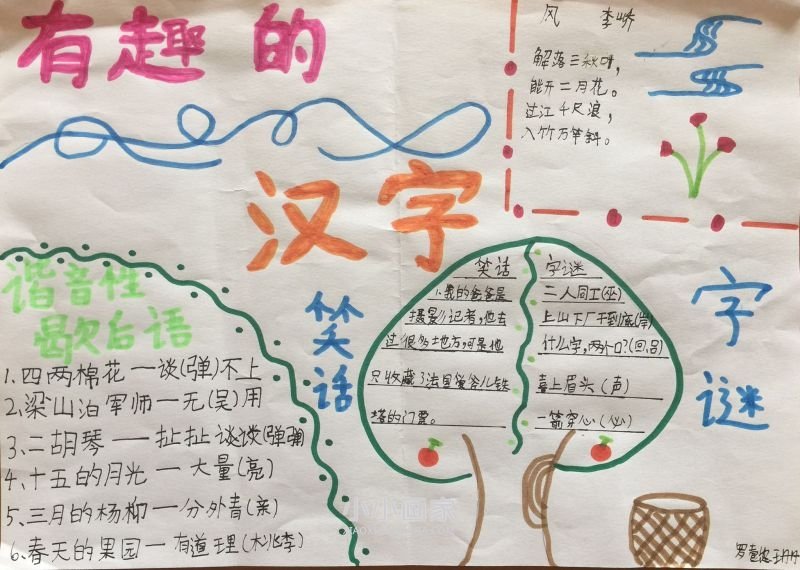 有趣的
汉字
风 李峤
解落三秋叶，
能开二月花。
过江千尺浪，
入竹万竿斜。
谐音性
歇后语
1.四两棉花一谈(弹)不上
2.梁山泊军师一无(吴)用
3.二胡琴 一扯扯谈谈(弹弹)
4.十五的月光 一 大量(亮)
5.三月的杨柳一分外青(亲)
6.春天的果园一有道理(桃李)
笑话
笑话
1.我的爸爸是
摄影记者,他去
过很多地方,可是他
只收藏了法国爱弗儿铁
塔的门票。
字谜
二人同工(巫)
上山下厂干到底(岸)
什么字,两个口?(回、吕)
喜上眉头（声）
一箭穿心（必）
字谜
小小画家